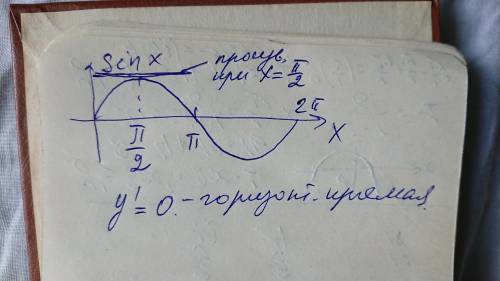 sin x
произв.
при x = π/2
π/2
π
2π
x
y' = 0. – горизонт. прямая